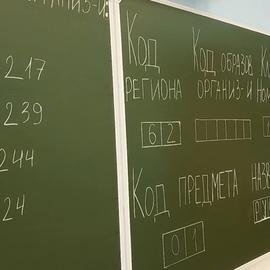 ОРГАНИЗ-И
217
239
244
24
КОД РЕГИОНА
КОД ОБРАЗОВ ОРГАНИЗ-И
62
КОД ПРЕДМЕТА
01